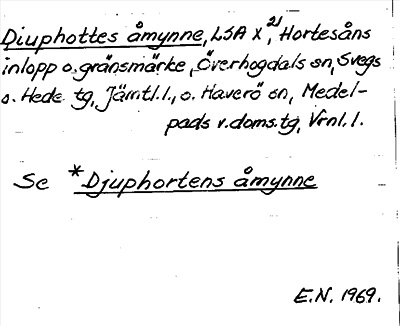 Djuphottes åmynne, LSA X 21, Hortesåns
inlopp o. gränsmärke, Överhogdals sn, Svegs
o. Hede tg, Jämtl. l., o. Haverö sn, Medel-
pads v. doms. tg, Vrnl. l.
Se *Djuphortens åmynne
E.N. 1969.